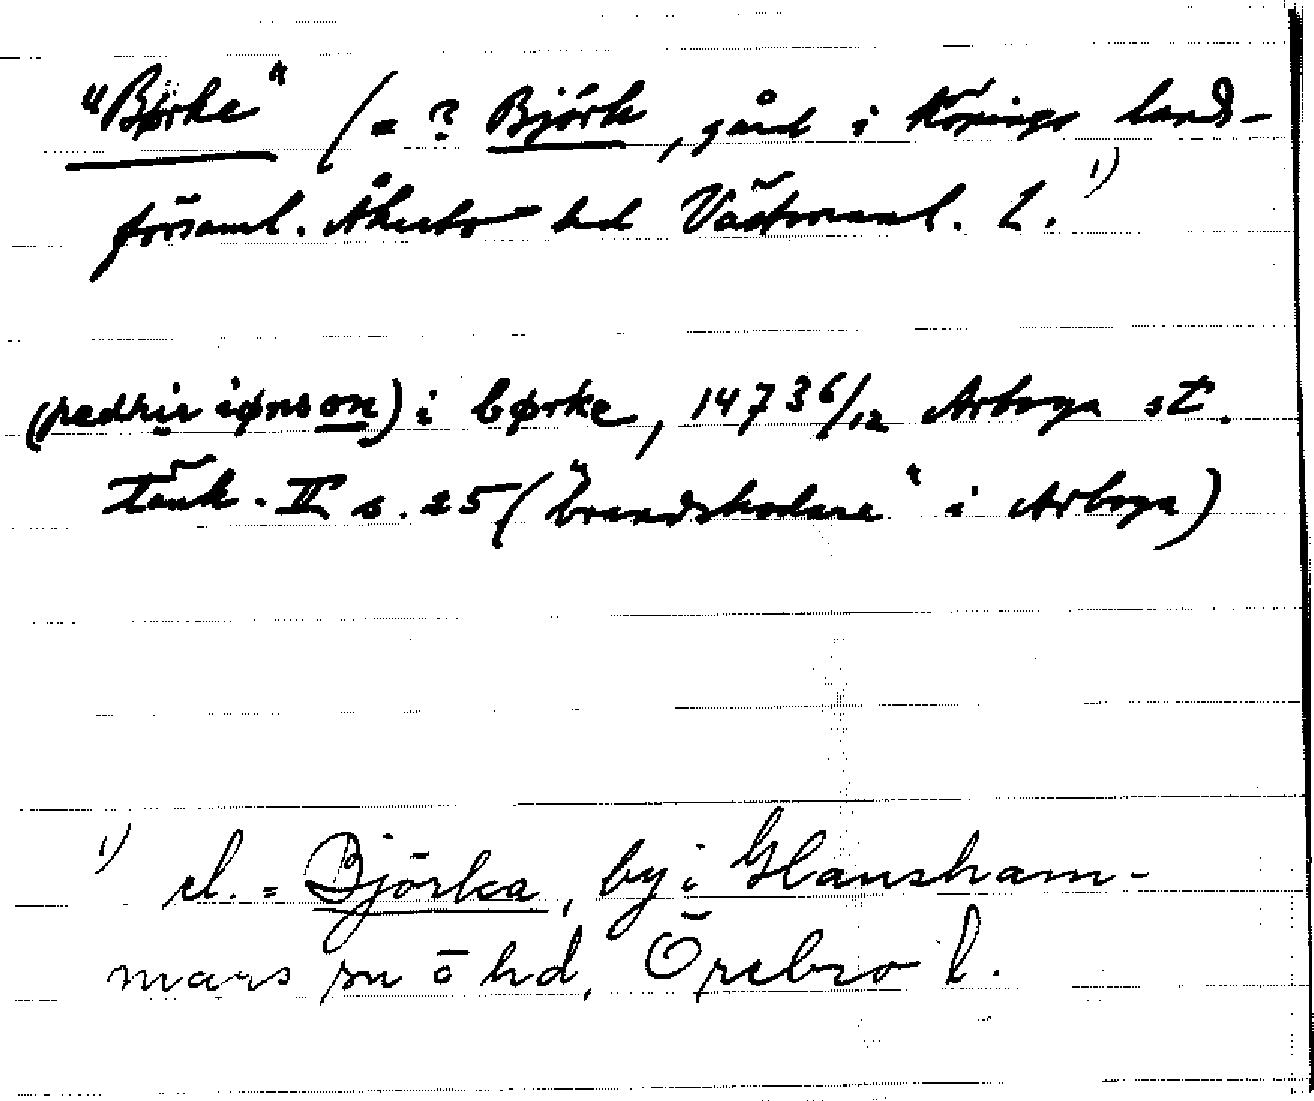 "Børke" (= ? Björk, gård i Köpings lands-
församl. Åkerbo hd Västmanl. L. 1)
(pedhir iønson) i børke, 1473 6/12 Arboga st.
tänk. II s. 25 ("brandskodare" i Arboga)
1) el. = Björka, by i Glansham-
mars sn o hd, Örebro l.